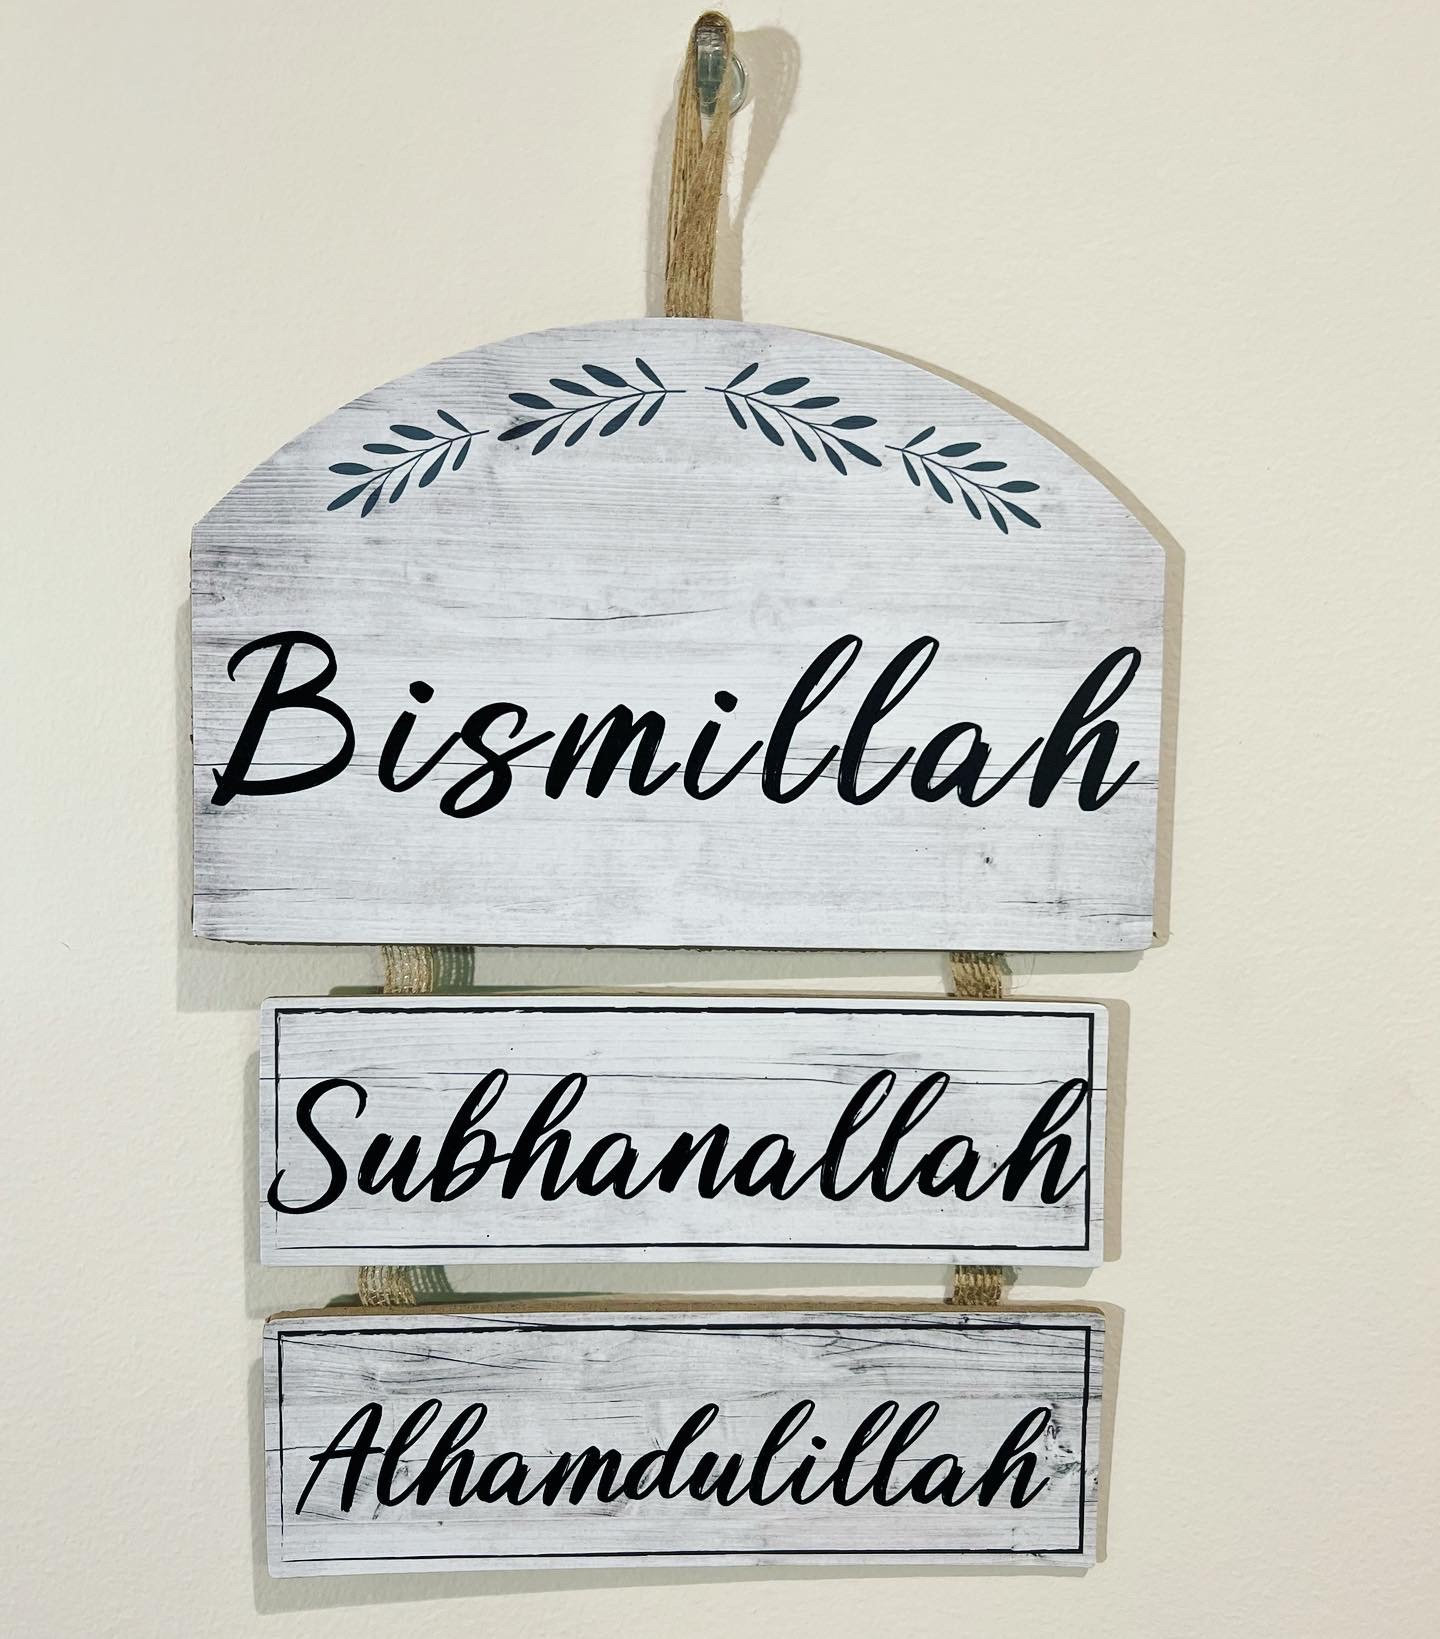 Bismillah
Subhanallah
Alhamdulillah